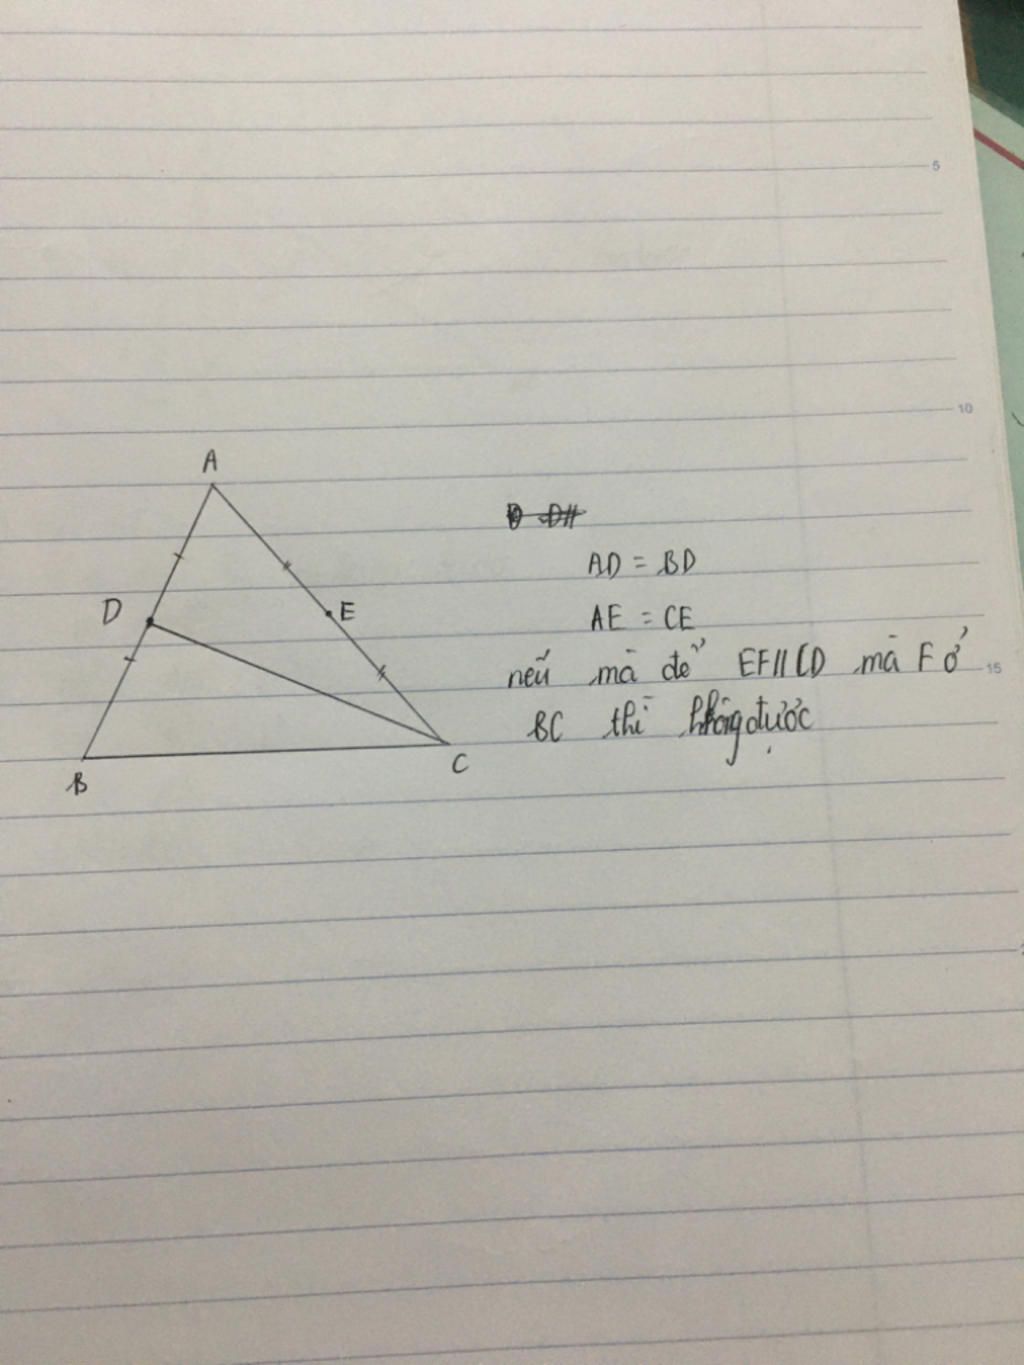 5
10
A
D D//
AD = BD
D
E
AE = CE
nếu mà để EF//CD mà F ở
15
BC thì không được
B
C